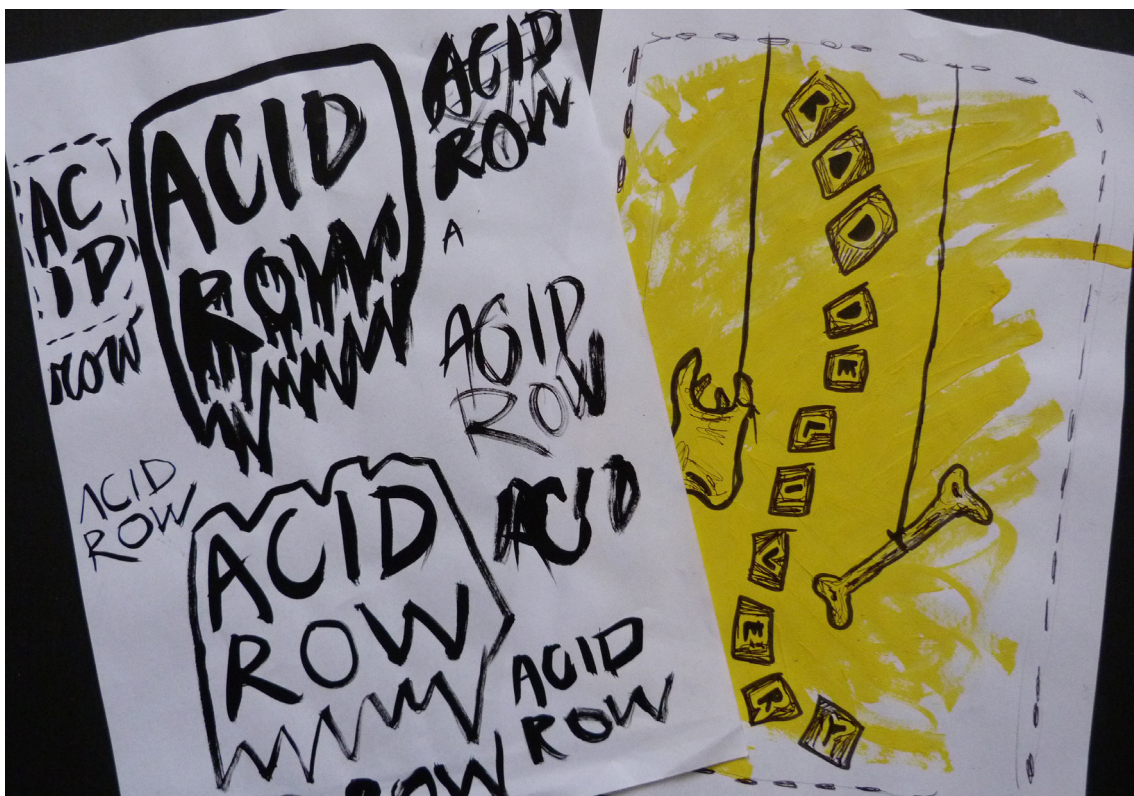 ACID
ROW
ACID
ROW
AC
ID
ROW
A
ACID
ROW
ACID
ROW
ACID
ROW
ACID
ACID
ROW
ROW
DELIVERY